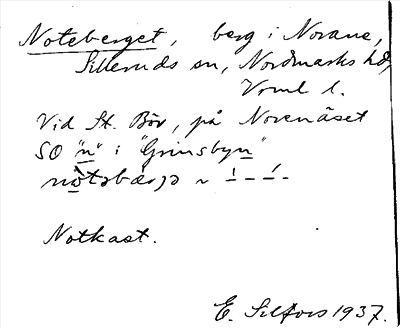 Noteberget, berg i Norane,
Silleruds sn, Nordmarks hd,
Vrml l.
Vid St. Bör, på Norenäset
SO "n" i "Grinsbyn"
Notkast.
E. Silfors 1937.